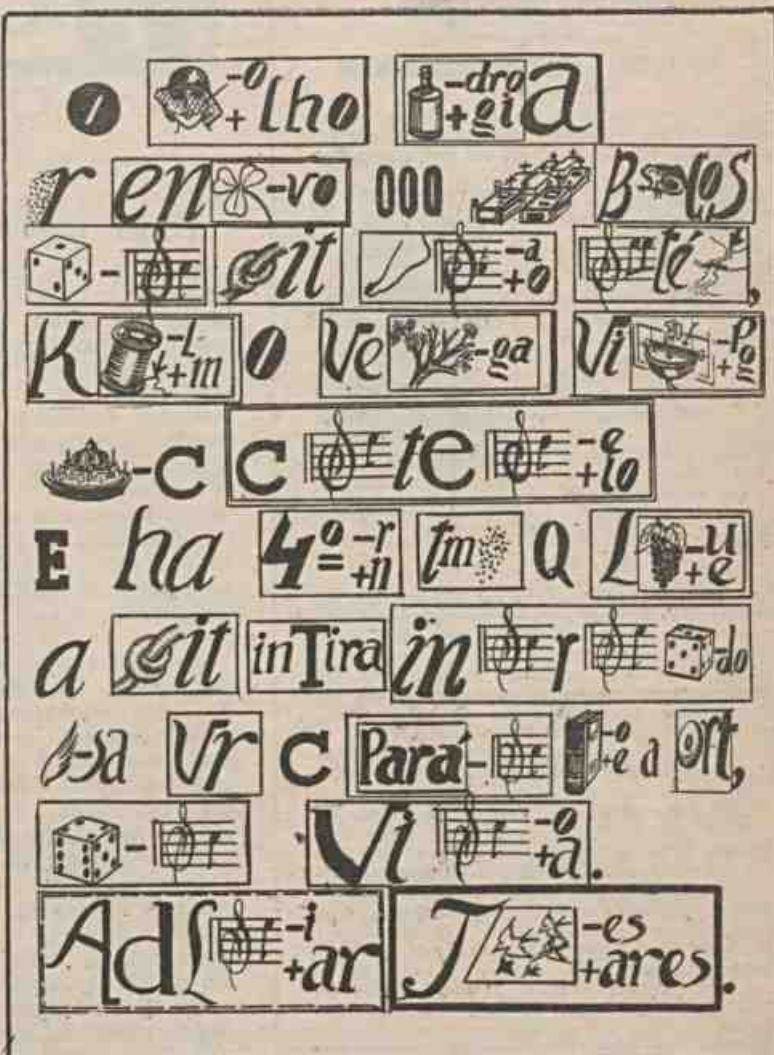 O -o +lho -dro +gi a
r en -vo 000 B-ços
- it -a +o té ,
K -L +m O Ve -ga Vi -Po +g
-C C te -e +lo
E ha 4º -r +n tm Q L -u +e
a it inTira in r -do
-sa Vr C Pará- -o +e a Ort,
- Vi -o +a.
AdL -i +ar J -es +ares.